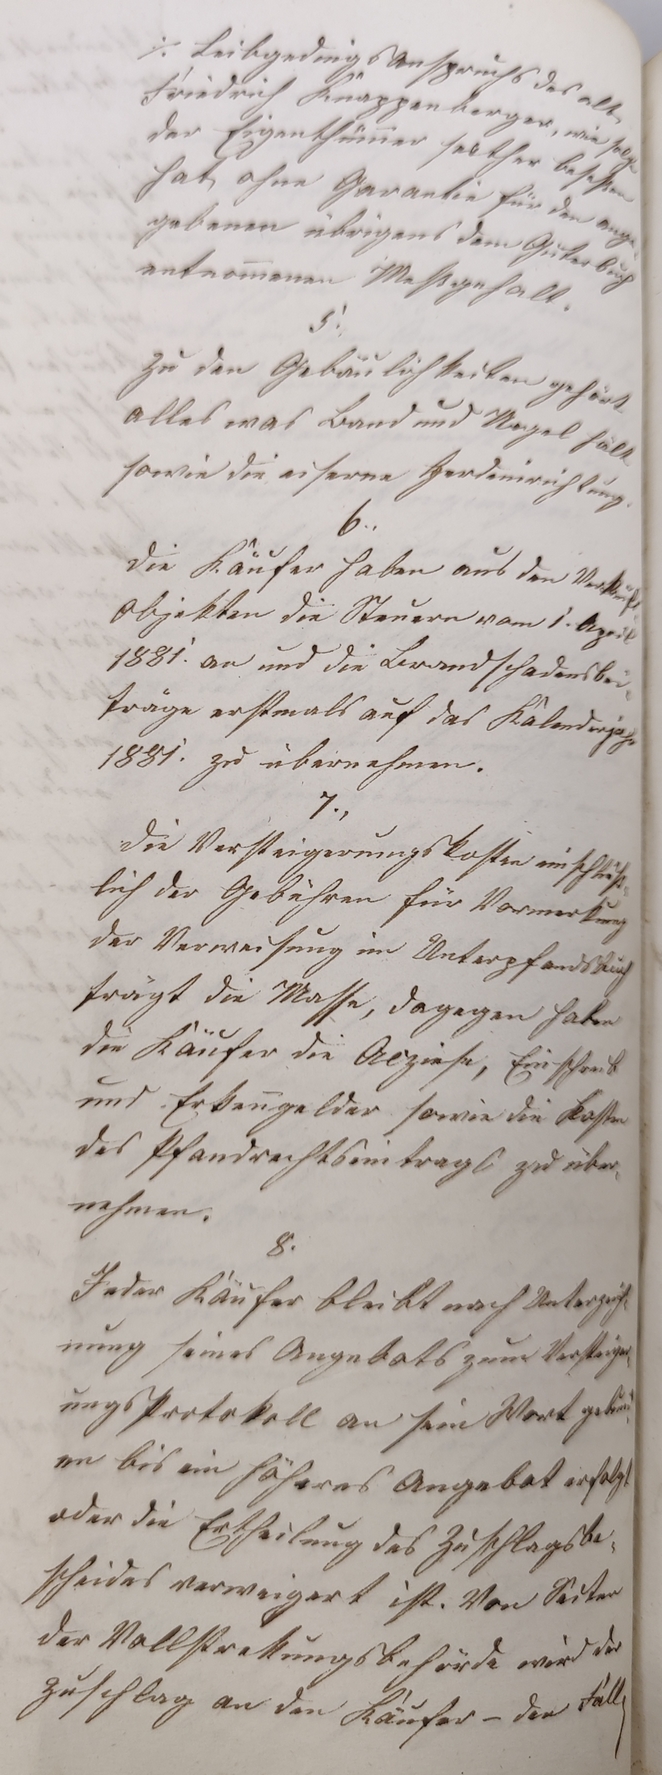 ./. Leibgedings Anspruchs des alt
Friedrich Knappenberger, wie solche
der Eigenthümer seither besessen
hat, ohne Garantie für den ange-
gebenen übrigens dem Güterbuch
entnommenen Meßgehalt.
5.
Zu den Gebäulichkeiten gehört
alles was Band und Nagel hält
sowie die eiserne Herdeinrichtung.
6.
Die Käufer haben aus den Verkaufs-
objekten die Steuern vom 1. April
1881. an und die Brandschadensbei-
träge erstmals auf das Kalenderjahr
1881. zu übernehmen.
7.,
Die Versteigerungskosten einschließ-
lich der Gebühren für Vormerkung
der Verweisung im Unterpfandsbuch
trägt die Masse, dagegen haben
die Käufer die Acziese, Einschreib
und Erkenngelder sowie die Kosten
des Pfandrechtseintrags zu über-
nehmen.
8.
Jeder Käufer bleibt nach Unterzeich-
nung seines Angebots zum Versteiger-
ungsProtokoll an sein Wort gebund-
en bis ein höheres Angebot erfolgt
oder die Ertheilung des Zuschlagsbe-
scheides verweigert ist. Von Seiten
der Vollstreckungsbehörde wird der
Zuschlag an den Käufer – den Fall